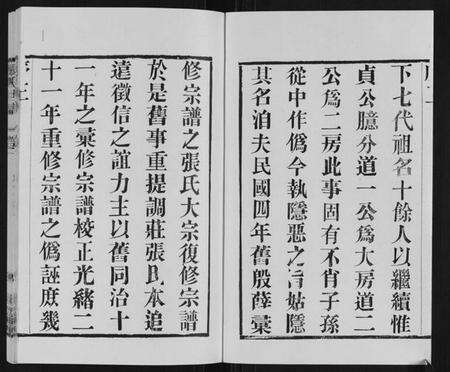 下七代祖名十餘人以繼續惟
貞公臆分道一公爲大房道二
公爲二房此事固有不肖子孫
從中作僞今執隱惡之旨姑隱
其名洎夫民國四年舊殷薛稾
修宗譜之張氏大宗復修宗譜
於是舊事重提調莊張氏本追
遠徵信之誼力主以舊同治十
一年之稾修宗譜校正光緒二
十一年重修宗譜之僞誣庶幾